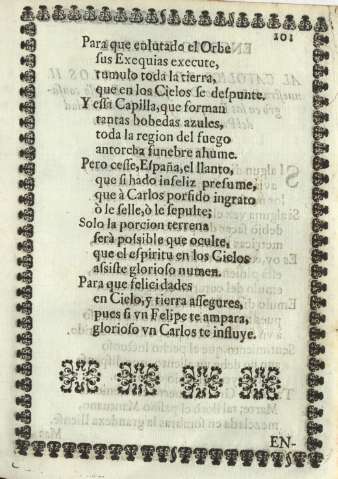 101
Para que enlutado el Orbe
sus Exequias execute,
tumulo toda la tierra,
que en los Cielos se despunte.
Y essa Capilla, que forman
tantas bobedas azules,
toda la region del fuego
antorcha funebre ahume.
Pero cesse, España, el llanto,
que si hado infeliz presume,
que à Carlos porfido ingrato
ò le selle, ò le sepulte;
Solo la porcion terrena
serà possible que oculte,
que el espiritu en los Cielos
assiste glorioso numen.
Para que felicidades
en Cielo, y tierra assegures,
pues si vn Felipe te ampara,
glorioso vn Carlos te influye.
EN-